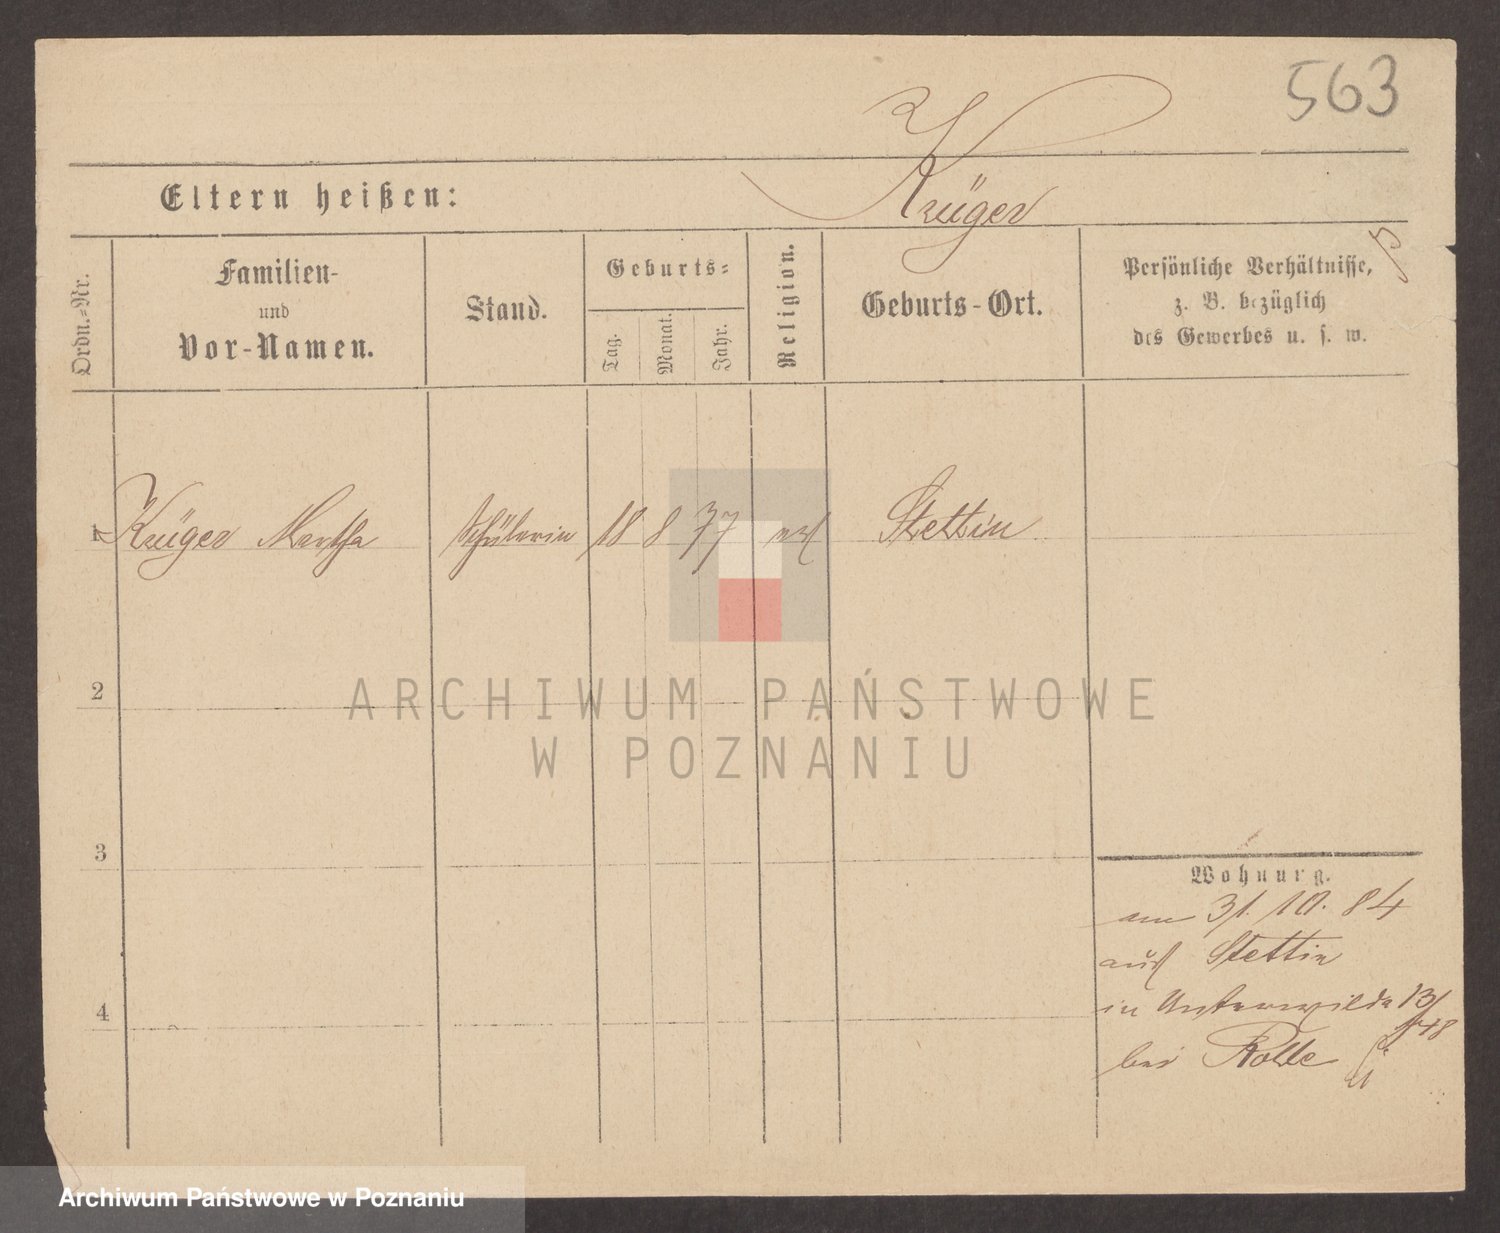 563
Krüger
Eltern heißen:
Ordn.-Nr.
Familien-
und
Vor-Namen.
Stand.
Geburts-
Tag.
Monat.
Jahr.
Religion.
Geburts-Ort.
Persönliche Verhältnisse,
z. B. bezüglich
des Gewerbes u. s. w.
1 Krüger Martha Schülerin 18 8 77 Stettin
2
ARCHIWUM PAŃSTWOWE
W POZNANIU
3
Wohnung.
am 31. 10. 84
aus Stettin
4
in Unterwilda
bei
Archiwum Państwowe w Poznaniu